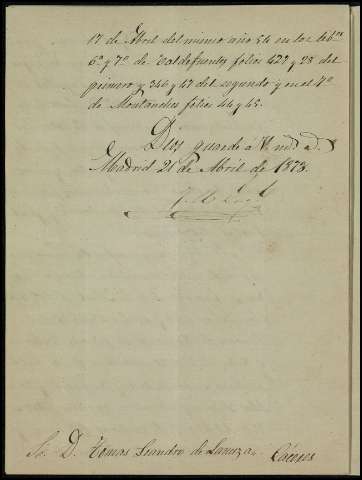 17 de Abril del mismo año 54 en los lib.os
6º y 7º de Valdefuentes folios 427 y 28 del
primero y 346 y 47 del segundo y en el 4º
de Montanchez folios 44 y 45.
Dios guarde á V. m.s a.s
Madrid 21 de Abril de 1873.
Sr. D. Tomas Leandro de Lanuza. Cáceres